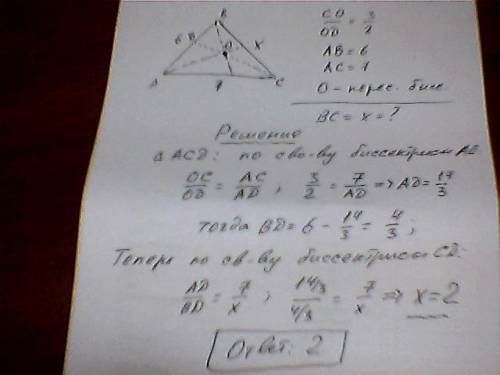 B
6
D
O
x
A
7
C
CO/OD = 3/2
AB = 6
AC = 7
O - перес. бис.
BC = x = ?
Решение
Δ ACD: по сво-ву биссектрисы AO
OC/OD = AC/AD ; 3/2 = 7/AD => AD = 14/3
тогда BD = 6 - 14/3 = 4/3 ;
Теперь по св-ву биссектрисы CD:
AD/BD = 7/x ; 14/3 / 4/3 = 7/x => x = 2
Ответ: 2